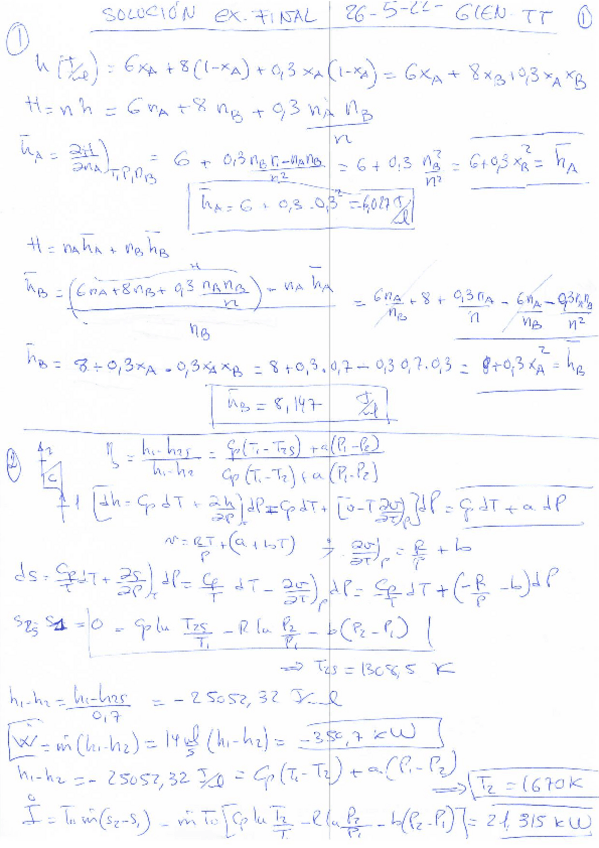 SOLUCIÓN EX. FINAL 26-5-22- GIEN. TT ①
① h (J/mol) = 6xA + 8(1-xA) + 0,3 xA(1-xA) = 6xA + 8xB + 0,3 xA xB
H = nh = 6nA + 8nB + 0,3 nA nB / n
h̄A = ∂H/∂nA)T,P,nB = 6 + 0,3 (nB n - nA nB)/n² = 6 + 0,3 nB²/n² = 6 + 0,3 xB² = h̄A
h̄A = 6 + 0,3 · 0,3² = 6,027 J/mol
H = nA h̄A + nB h̄B
h̄B = ((6nA + 8nB + 0,3 nA nB/n) - nA h̄A) / nB = 6nA/nB + 8 + 0,3nA/n - 6nA/nB - 0,3nA nB/n²
h̄B = 8 + 0,3xA - 0,3xA xB = 8 + 0,3 · 0,7 - 0,3 0,7 · 0,3 = 8 + 0,3xA² = h̄B
h̄B = 8,147 J/mol
② 2 C 1 η = (h1-h2s)/(h1-h2) = (Cp(T1-T2s) + a(P1-P2)) / (Cp(T1-T2) + a(P1-P2))
[dh = Cp dT + ∂h/∂P)T dP = Cp dT + [v - T ∂v/∂T)P] dP = Cp dT + a dP
v = RT/P + (a + bT) ; ∂v/∂T)P = R/P + b
ds = Cp/T dT + ∂s/∂P)T dP = Cp/T dT - ∂v/∂T)P dP = Cp/T dT + (-R/P - b) dP
s2s - s1 = 0 = Cp ln T2s/T1 - R ln P2/P1 - b(P2-P1)
⇒ T2s = 1308,5 K
h1-h2 = (h1-h2s)/0,7 = -25052,32 J/mol
Ẇ = ṁ(h1-h2) = 14 mol/s (h1-h2) = -350,7 kW
h1-h2 = -25052,32 J/mol = Cp(T1-T2) + a(P1-P2) ⇒ T2 = 1670 K
İ = T0 ṁ(s2-s1) = ṁ T0 [Cp ln T2/T1 - R ln P2/P1 - b(P2-P1)] = 21,315 kW